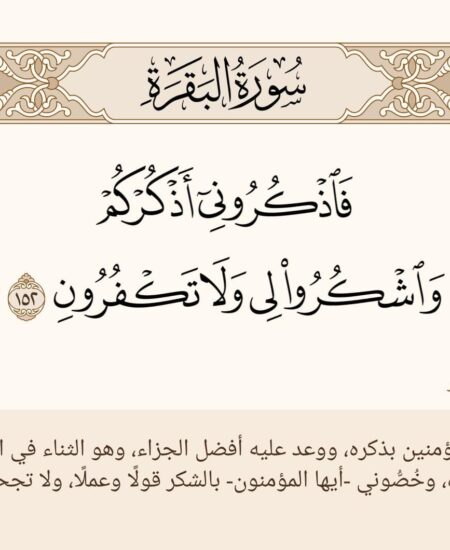 سُورَةُ البَقَرَةِ
فَٱذۡكُرُونِيٓ أَذۡكُرۡكُمۡ
وَٱشۡكُرُواْ لِي وَلَا تَكۡفُرُونِ ١٥٢
ؤمنين بذكره، ووعد عليه أفضل الجزاء، وهو الثناء في ا
، وخُصُّوني -أيها المؤمنون- بالشكر قولًا وعملًا، ولا تجح